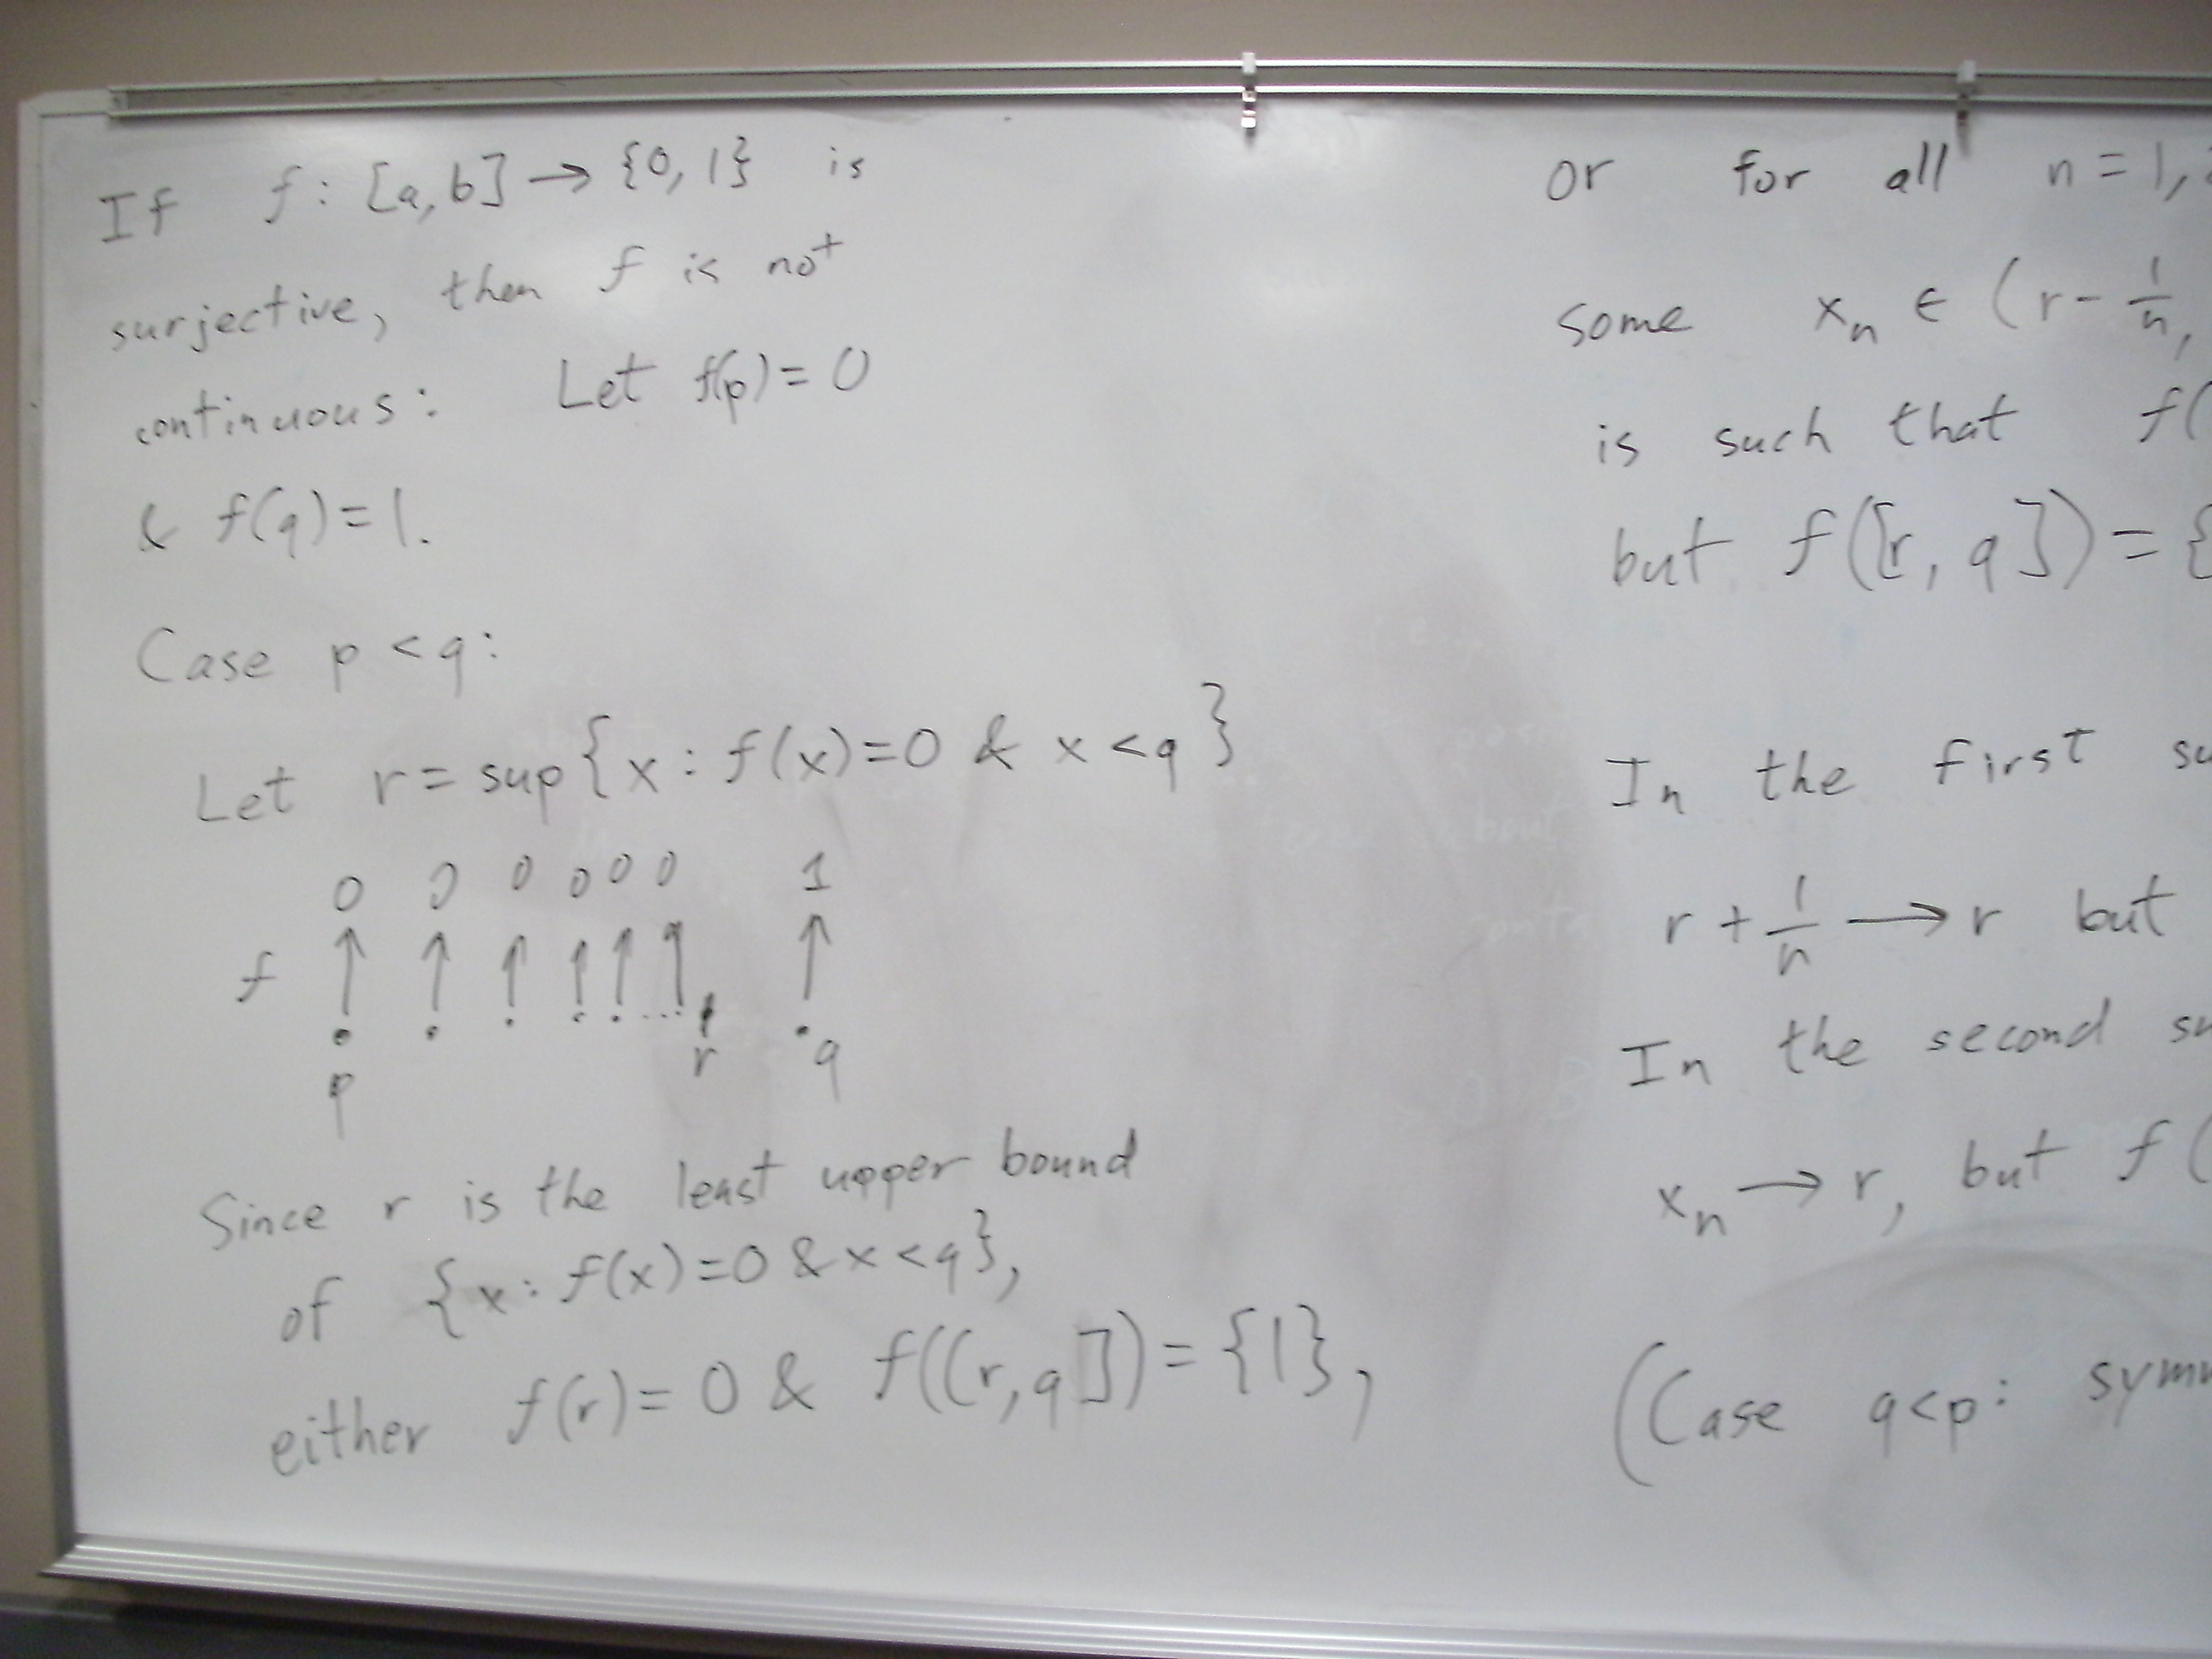 If f: [a,b] → {0,1} is
surjective, then f is not
continuous: Let f(p)=0
& f(q)=1.
Case p<q:
Let r = sup{x : f(x)=0 & x<q}
0 0 0 0 0 0 1
f ↑ ↑ ↑ ↑ ↑ ↑ ↑
. . . . . ... r . q
p
Since r is the least upper bound
of {x: f(x)=0 & x<q},
either f(r)=0 & f((r,q])={1},
or for all n=1,
some xₙ ∈ (r-1/n,
is such that f(
but f([r,q])={
In the first su
r+1/n → r but
In the second su
xₙ → r, but f(
(Case q<p: symm